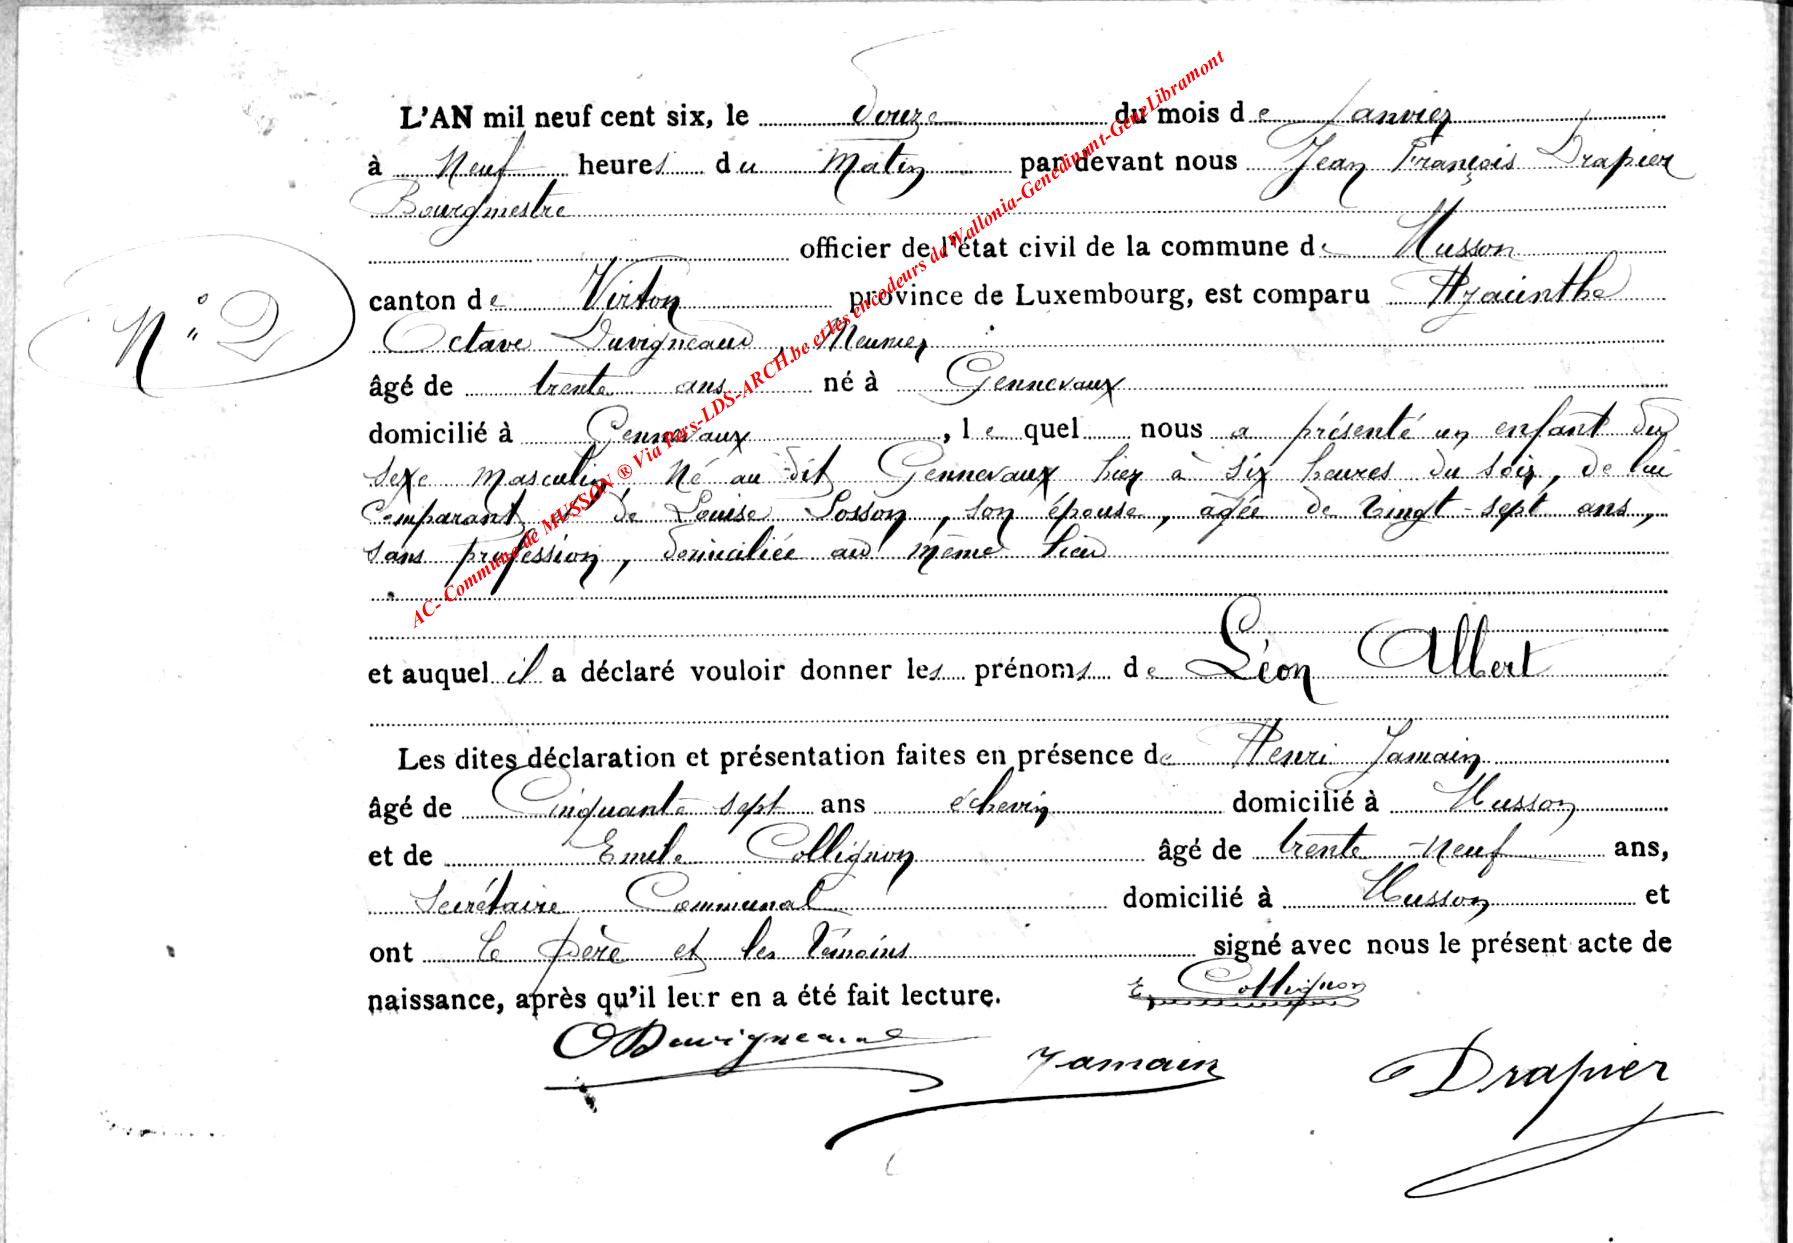 L'AN mil neuf cent six, le douze du mois de Janvier
à Neuf heures du Matin par devant nous Jean François Drapier
Bourgmestre
officier de l'état civil de la commune de Musson
N° 2
canton de Virton province de Luxembourg, est comparu Hyacinthe
Octave Duvigneaud, Meunier
âgé de trente ans né à Gennevaux
domicilié à Gennevaux, le quel nous a présenté un enfant du
sexe masculin né au dit Gennevaux hier à six heures du soir, de lui
Comparant et de Louise Sosson, son épouse, agée de vingt-sept ans,
sans profession, domiciliée au même lieu
et auquel il a déclaré vouloir donner les prénoms de Léon Albert
Les dites déclaration et présentation faites en présence de Henri Jamain
âgé de Cinquante sept ans échevin domicilié à Musson
et de Emile Collignon âgé de trente-neuf ans,
Secrétaire Communal domicilié à Musson et
ont le père et les témoins signé avec nous le présent acte de
naissance, après qu'il leur en a été fait lecture.
E. Collignon
O Duvigneaud
Jamain
Drapier
AC- Commune de MUSSON ® Via Pers-LDS-ARCH.be et les encodeurs de Wallonia-Genedinant-GeneLibramont